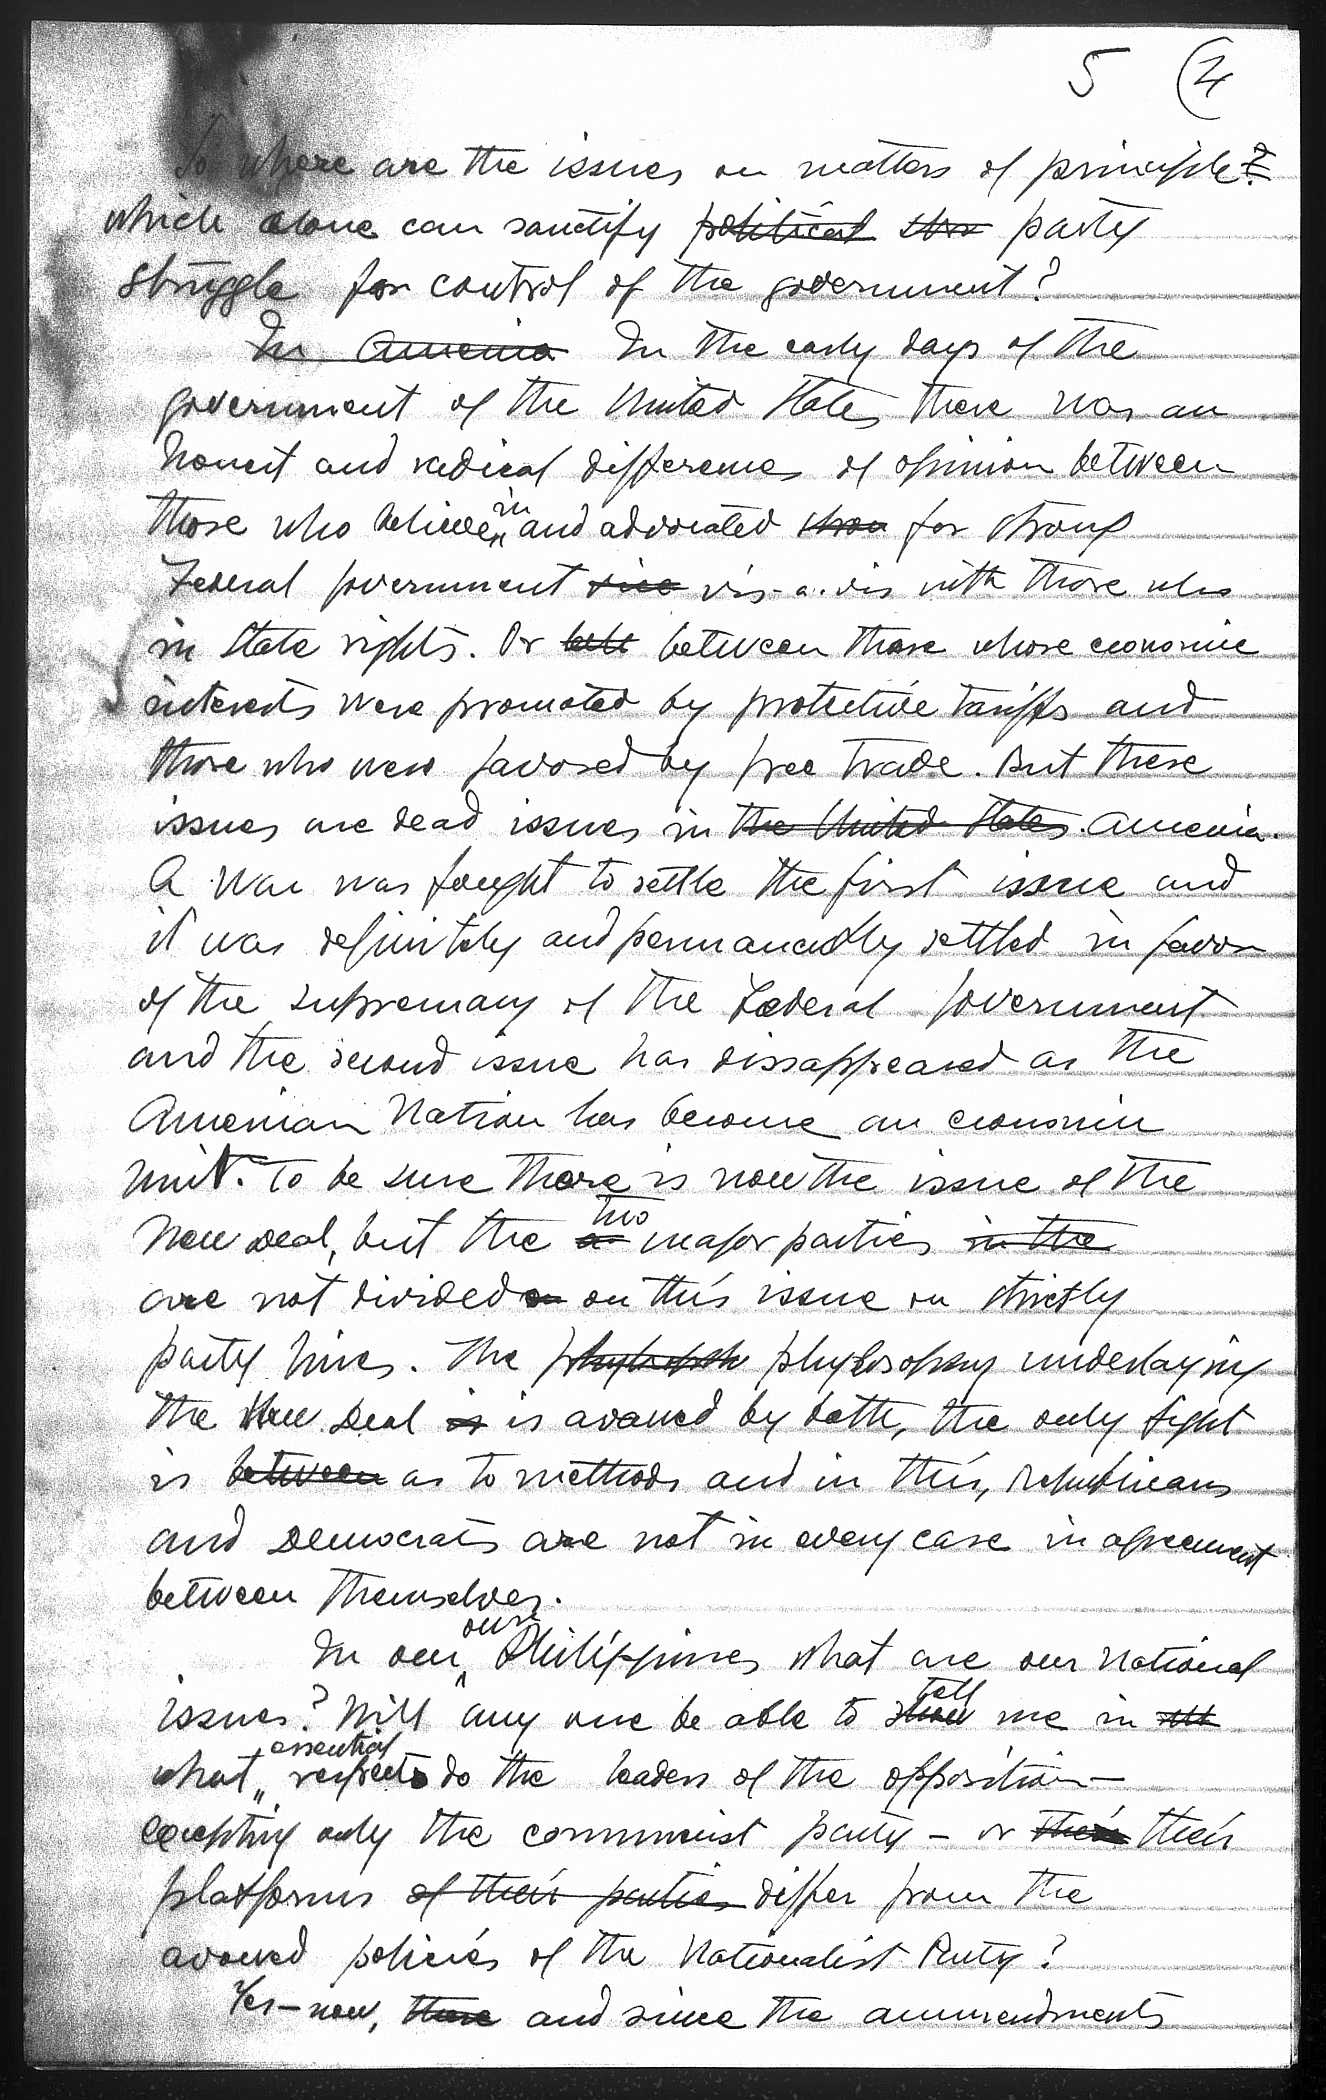 5 (4
So where are the issues on matters of principle?
which alone can sanctify political party
struggle for control of the government?
In America In the early days of the
government of the United States there was an
honest and radical differences of opinion between
in
those who believe and advocated for strong
Federal government vice vis-a-vis with those who
in State rights. Or between those whose economic
interests were promoted by protective tariffs and
those who were favored by free trade. But these
issues are dead issues in the United States. America.
A War was fought to settle the first issue and
it was definitely and permanently settled in favor
of the supremacy of the Federal government
and the second issue has dissappeared as the
American Nation has become an economic
unit. To be sure there is now the issue of the
two
New Deal, but the major parties in the
are not divided on on this issue on strictly
party lines. The phylosophy underlaying
the New Deal is is avowed by both, the only fight
is between as to methods and in this, Republicans
and Democrats are not in every case in agreement
between themselves.
own
In our Philippines what are our national
tell
issues? Will any one be able to show me in
essential
what respects do the leaders of the opposition —
excepting only the communist party — or their their
platforms of their parties differ from the
avowed policies of the Nationalist Party?
Yes — now, there and since the ammendments